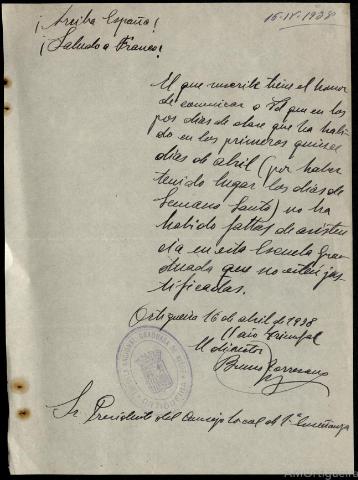 ¡Arriba España!
¡Saludo a Franco!
15-IV-1938
El que suscribe tiene el honor
de comunicar a Vd que en los
pos dias de clase que ha habi-
do en los primeros quince
dias de abril (por haber
tenido lugar los dias de
Semana Santa) no ha
habido faltas de asisten-
cia en esta Escuela Gra-
duada que no esten jus-
tificadas.
Ortigueira 16 de abril de 1938
II año Triunfal
El director
Sr. Presidente del Consejo Local de 1ª Enseñanza
AMOrtigueira